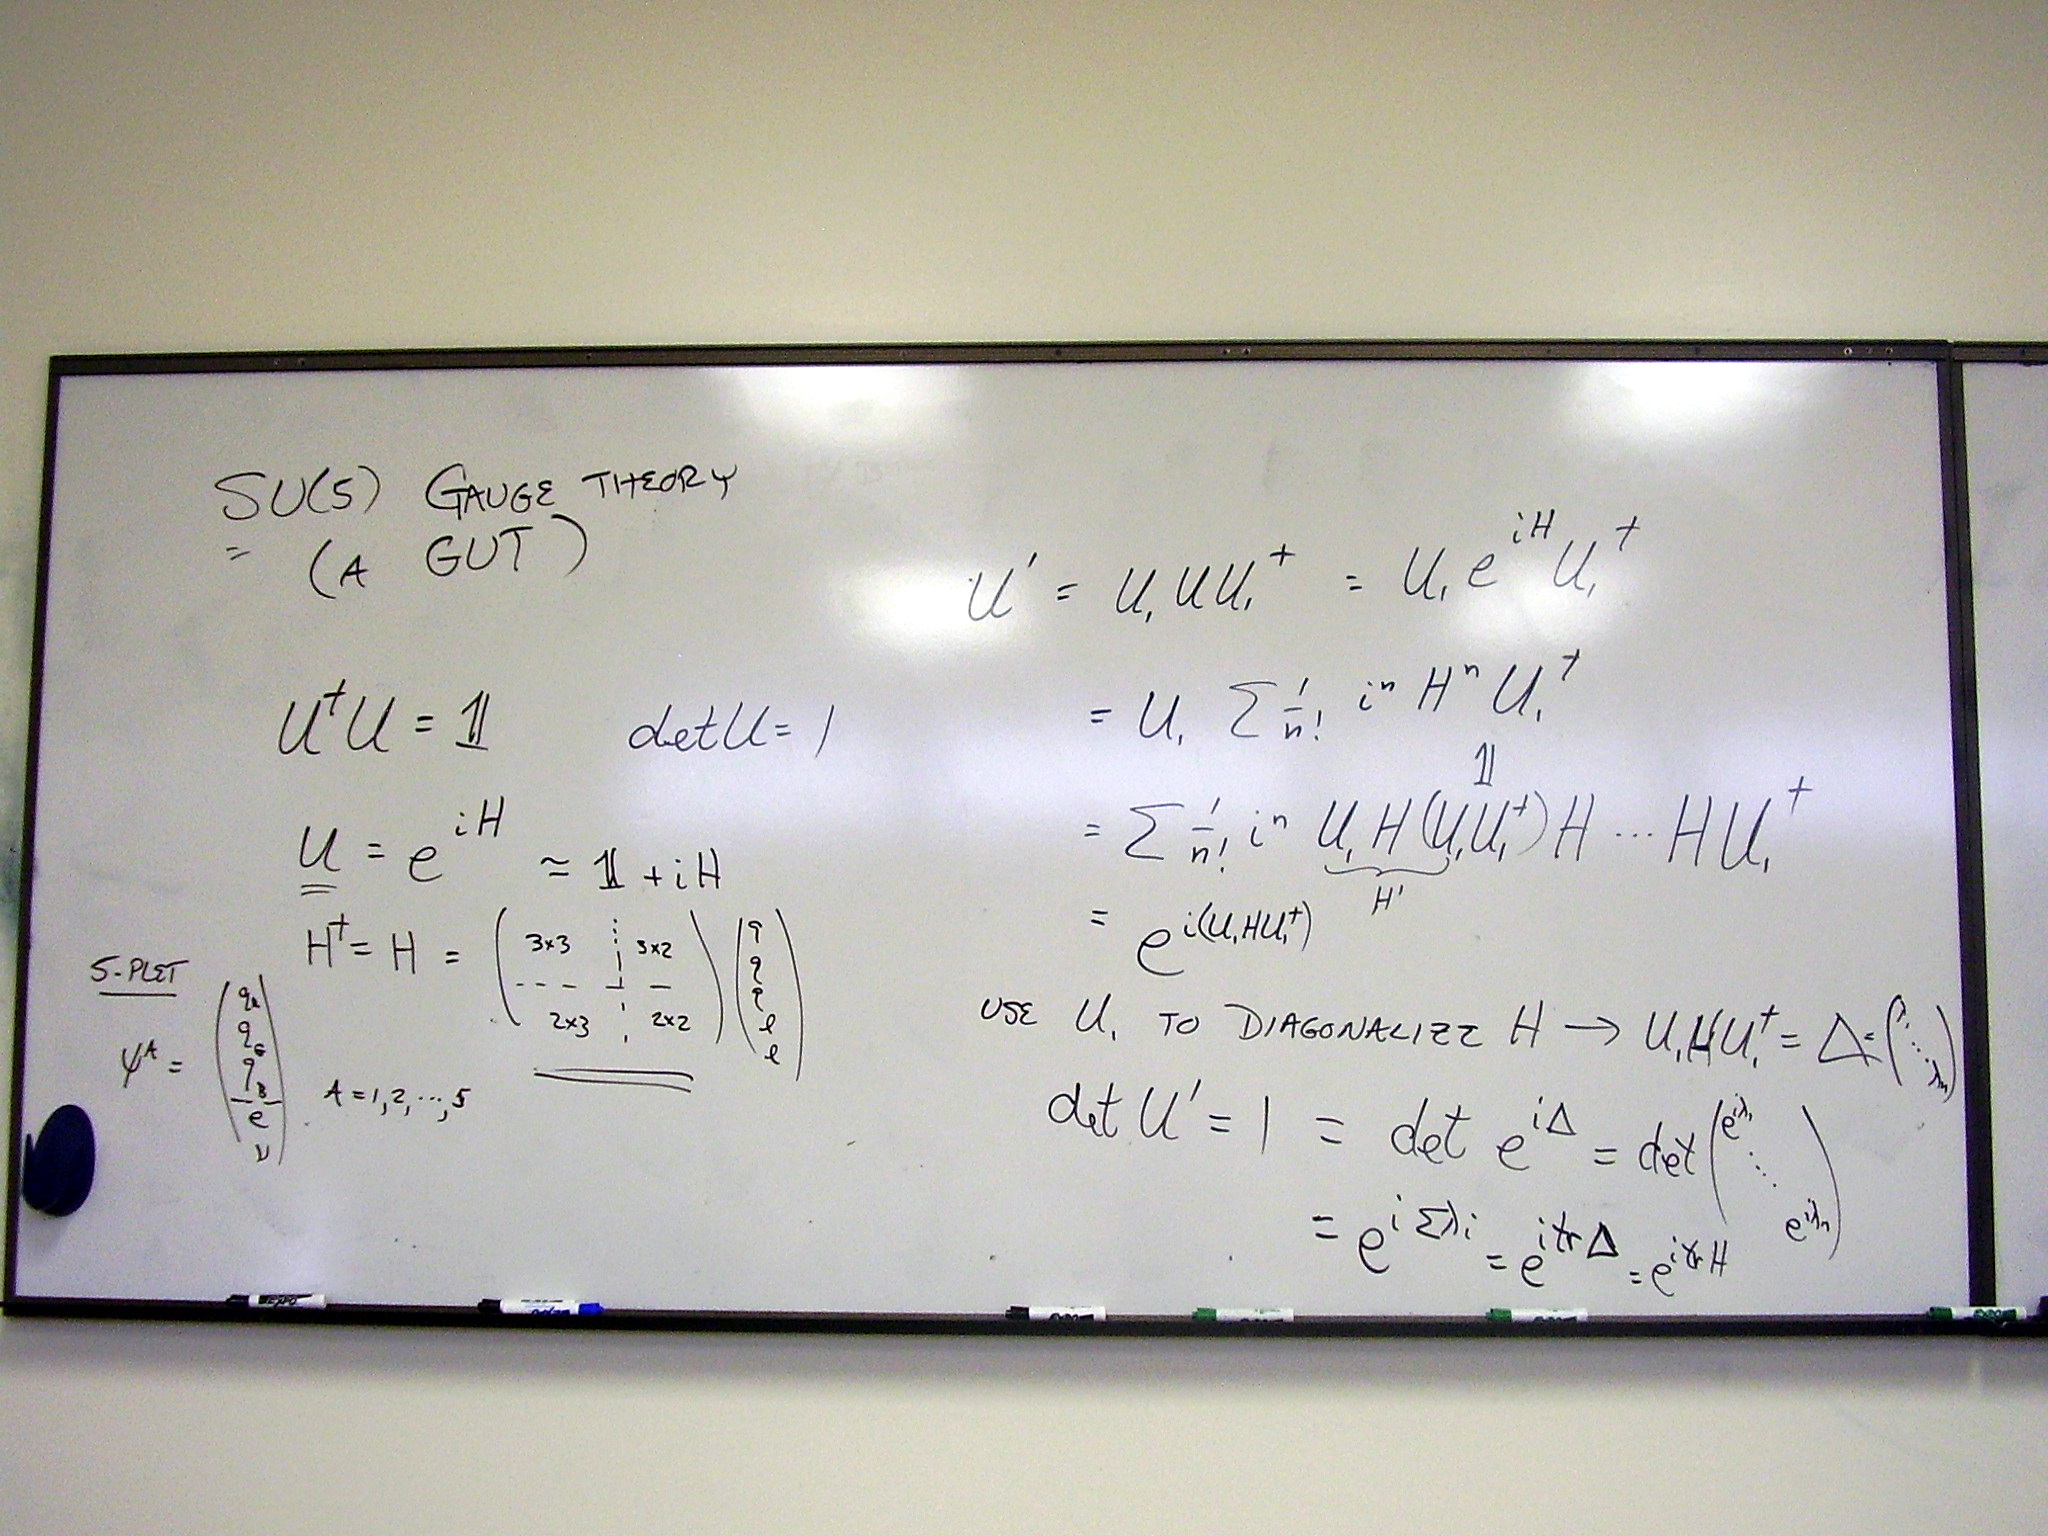 SU(5) GAUGE THEORY
= (A GUT)
U†U = 𝟙 det U = 1
U = e^{iH} ≈ 𝟙 + iH
H† = H = ( 3x3 3x2
2x3 2x2 ) ( q q q l l )
5-PLET
ψ^A = ( q_R q_G q_B e ν ) A = 1,2,⋯,5
U' = U₁UU₁† = U₁e^{iH}U₁†
= U₁ Σ 1/n! iⁿ Hⁿ U₁†
𝟙
= Σ 1/n! iⁿ U₁H(U₁U₁†)H ⋯ HU₁†
H'
= e^{i(U₁HU₁†)}
USE U₁ TO DIAGONALIZE H → U₁HU₁† = Δ = ( λ₁ ⋱ λₙ )
det U' = 1 = det e^{iΔ} = det ( e^{iλ₁} ⋱ e^{iλₙ} )
= e^{iΣλᵢ} = e^{i tr Δ} = e^{i tr H}
EXPO